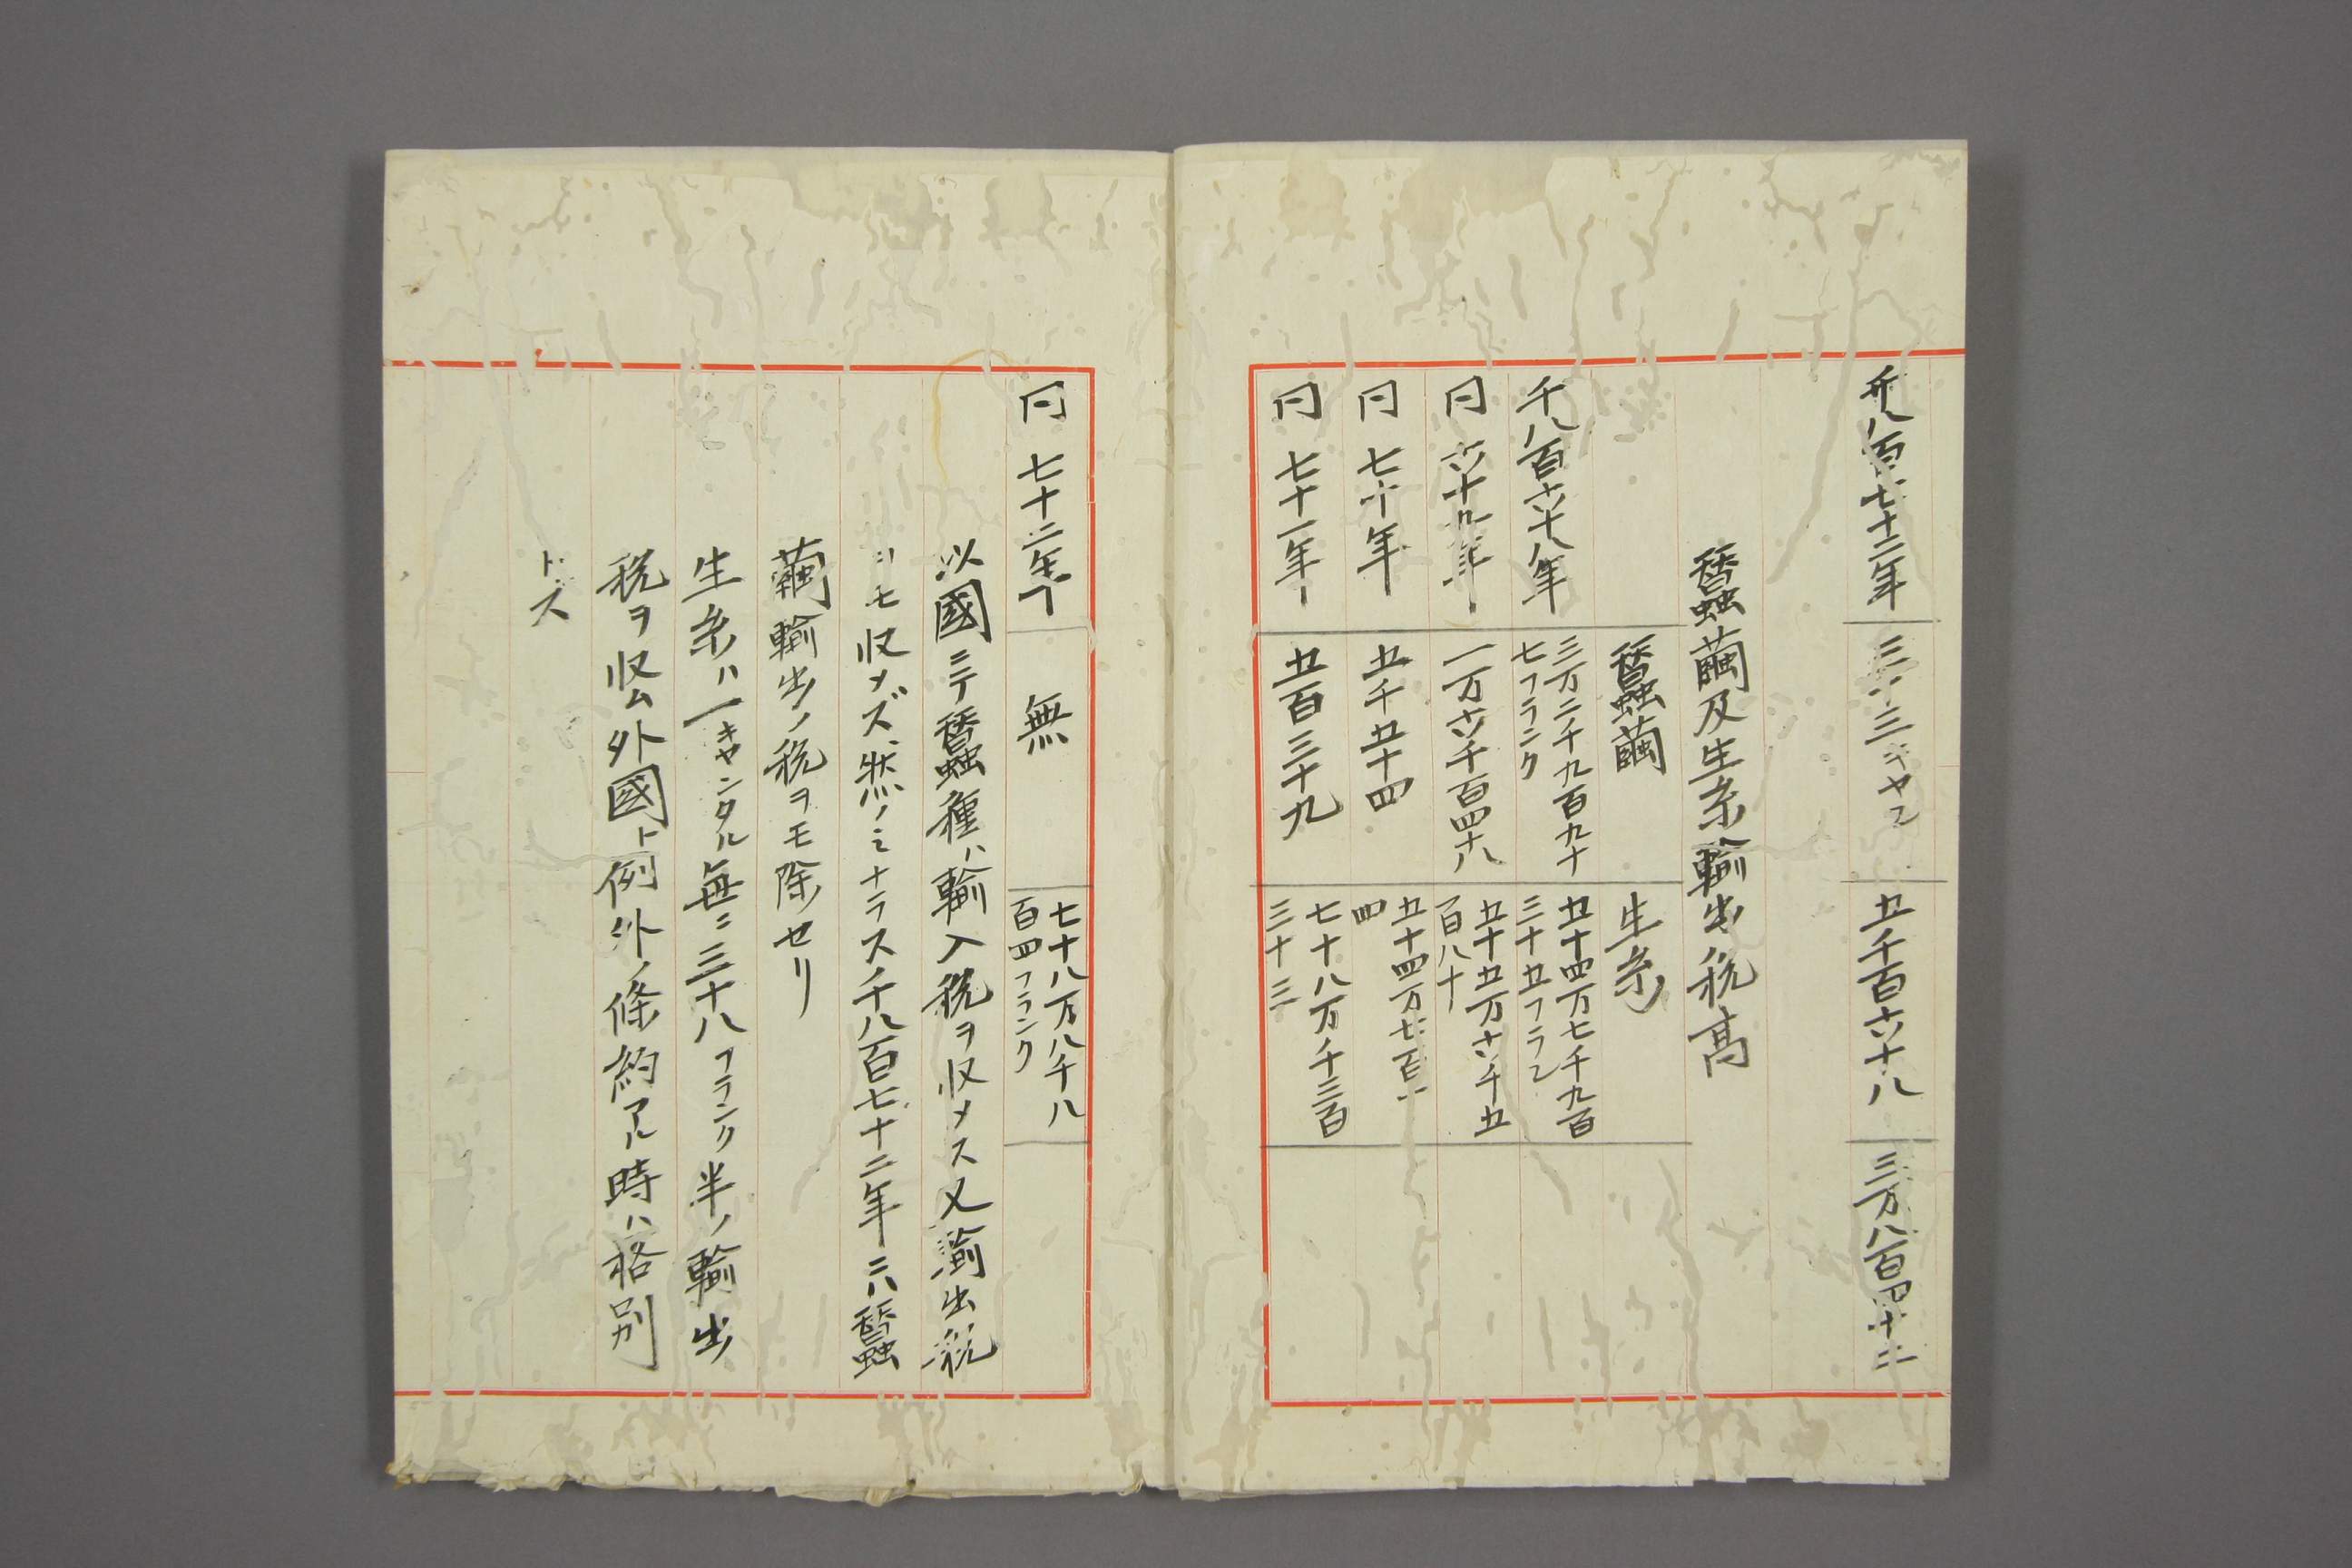 千八百七十二年 三、三キヤン 五千百六十八 三万八百四十二
蠶繭及生糸輸出税高
蠶繭 生糸
千八百六十八年 三万二千九百九十七フランク 五十四万七千九百三十五フラン
同 六十九年 一万六千百四十八 五十五万六千五百八十
同 七十年 五千五十四 五十四万七百 四
同 七十一年 五百三十九 七十八万千三百三十三
同 七十二年 無 七十八万八千八百四フランク
以國ニテ蠶種ハ輸入税ヲ収メス又輸出税
ヲモ収メズ然ノミナラス千八百七十二年ニハ蠶
繭輸出ノ税ヲモ除セリ
生糸ハ一キヤンタル毎ニ三十八フランク半ノ輸出
税ヲ収ム外國ト例外ノ條約アル時ハ格別
トス